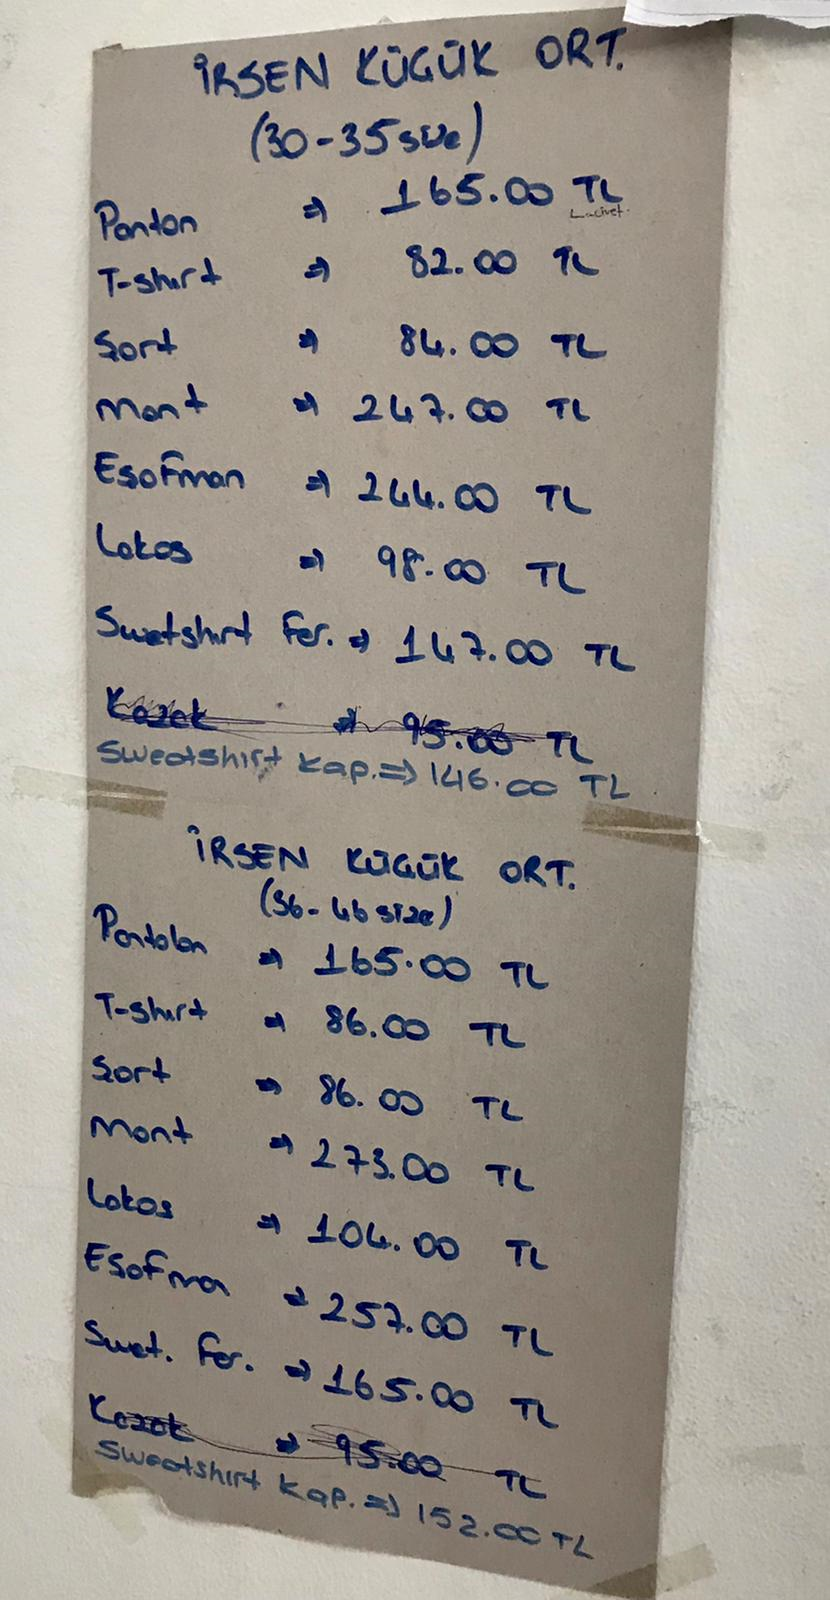 İRSEN KÜÇÜK ORT.
(30-35 size)
Panton ⇒ 165.00 TL
Lacivet.
T-shırt ⇒ 82.00 TL
Şort ⇒ 84.00 TL
Mont ⇒ 247.00 TL
Eşofman ⇒ 244.00 TL
Lakos ⇒ 98.00 TL
Swetshırt Fer. ⇒ 147.00 TL
Kazak ⇒ 95.00 TL
Sweatshirt Kap. ⇒ 146.00 TL
İRSEN KÜÇÜK ORT.
(36-46 size)
Pantolon ⇒ 165.00 TL
T-shırt ⇒ 86.00 TL
Şort ⇒ 86.00 TL
Mont ⇒ 273.00 TL
Lakos ⇒ 104.00 TL
Eşofma ⇒ 257.00 TL
Swet. Fer. ⇒ 165.00 TL
Kazak ⇒ 95.00 TL
Sweatshirt Kap. ⇒ 152.00 TL